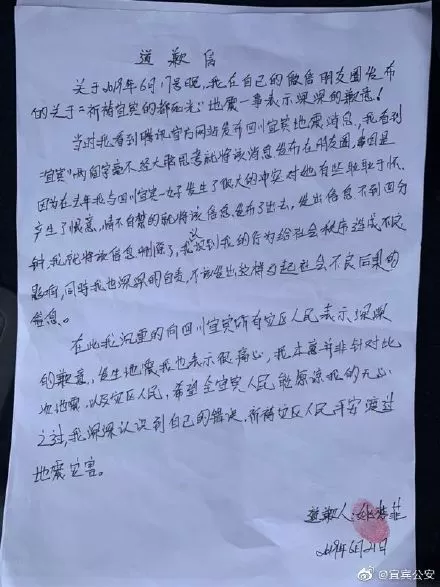 道歉信
关于2019年6月17号晚,我在自己的微信朋友圈发布
的关于“祈祷宜宾的都死光”地震一事表示深深的歉意!
当时我看到腾讯官方网站发布四川宜宾地震消息,我看到
“宜宾”两個字毫不经大脑思考就将该消息发布在朋友圈,原因是
因为在去年我与四川宜宾一女子发生了很大的冲突,对她有些耿耿于怀,
产生了恨意,情不自禁的就将该信息发布了出去,发出信息不到四分
钟,我就将该信息删除了,我认识到我的行为给社会秩序造成不良
影响,同时我也深深的自责,不该发出这样引起社会不良后果的
信息。
在此我沉重的向四川宜宾所有灾区人民表示了深深
的歉意,发生地震我也表示很痛心,我本意并非针对此
次地震,以及灾区人民,希望全宜宾人民能原谅我的无心
之过,我深深认识到自己的错误,祈祷灾区人民平安渡过
地震灾害。
道歉人:
2019年6月21日
@宜宾公安